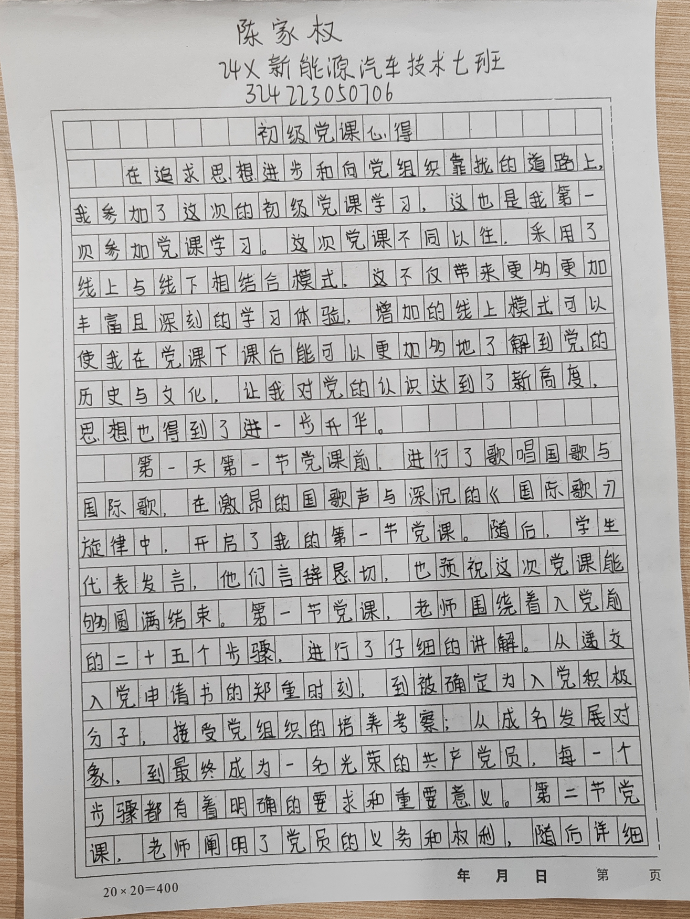 陈家权
24X新能源汽车技术七班
324223050706
初级党课心得
在追求思想进步和向党组织靠拢的道路上,
我参加了这次的初级党课学习，这也是我第一
次参加党课学习。这次党课不同以往，采用了
线上与线下相结合模式，这不仅带来更多更加
丰富且深刻的学习体验，增加的线上模式可以
使我在党课下课后能可以更加多地了解到党的
历史与文化，让我对党的认识达到了新高度，
思想也得到了进一步升华。
第一天第一节党课前，进行了歌唱国歌与
国际歌，在激昂的国歌声与深沉的《国际歌》
旋律中，开启了我的第一节党课。随后，学生
代表发言，他们言辞恳切，也预祝这次党课能
够圆满结束。第一节党课，老师围绕着入党前
的二十五个步骤，进行了仔细的讲解。从递交
入党申请书的郑重时刻，到被确定为入党积极
分子，接受党组织的培养考察；从成名发展对
象，到最终成为一名光荣的共产党员，每一个
步骤都有着明确的要求和重要意义。第二节党
课，老师阐明了党员的义务和权利，随后详细
20×20=400
年 月 日 第 页